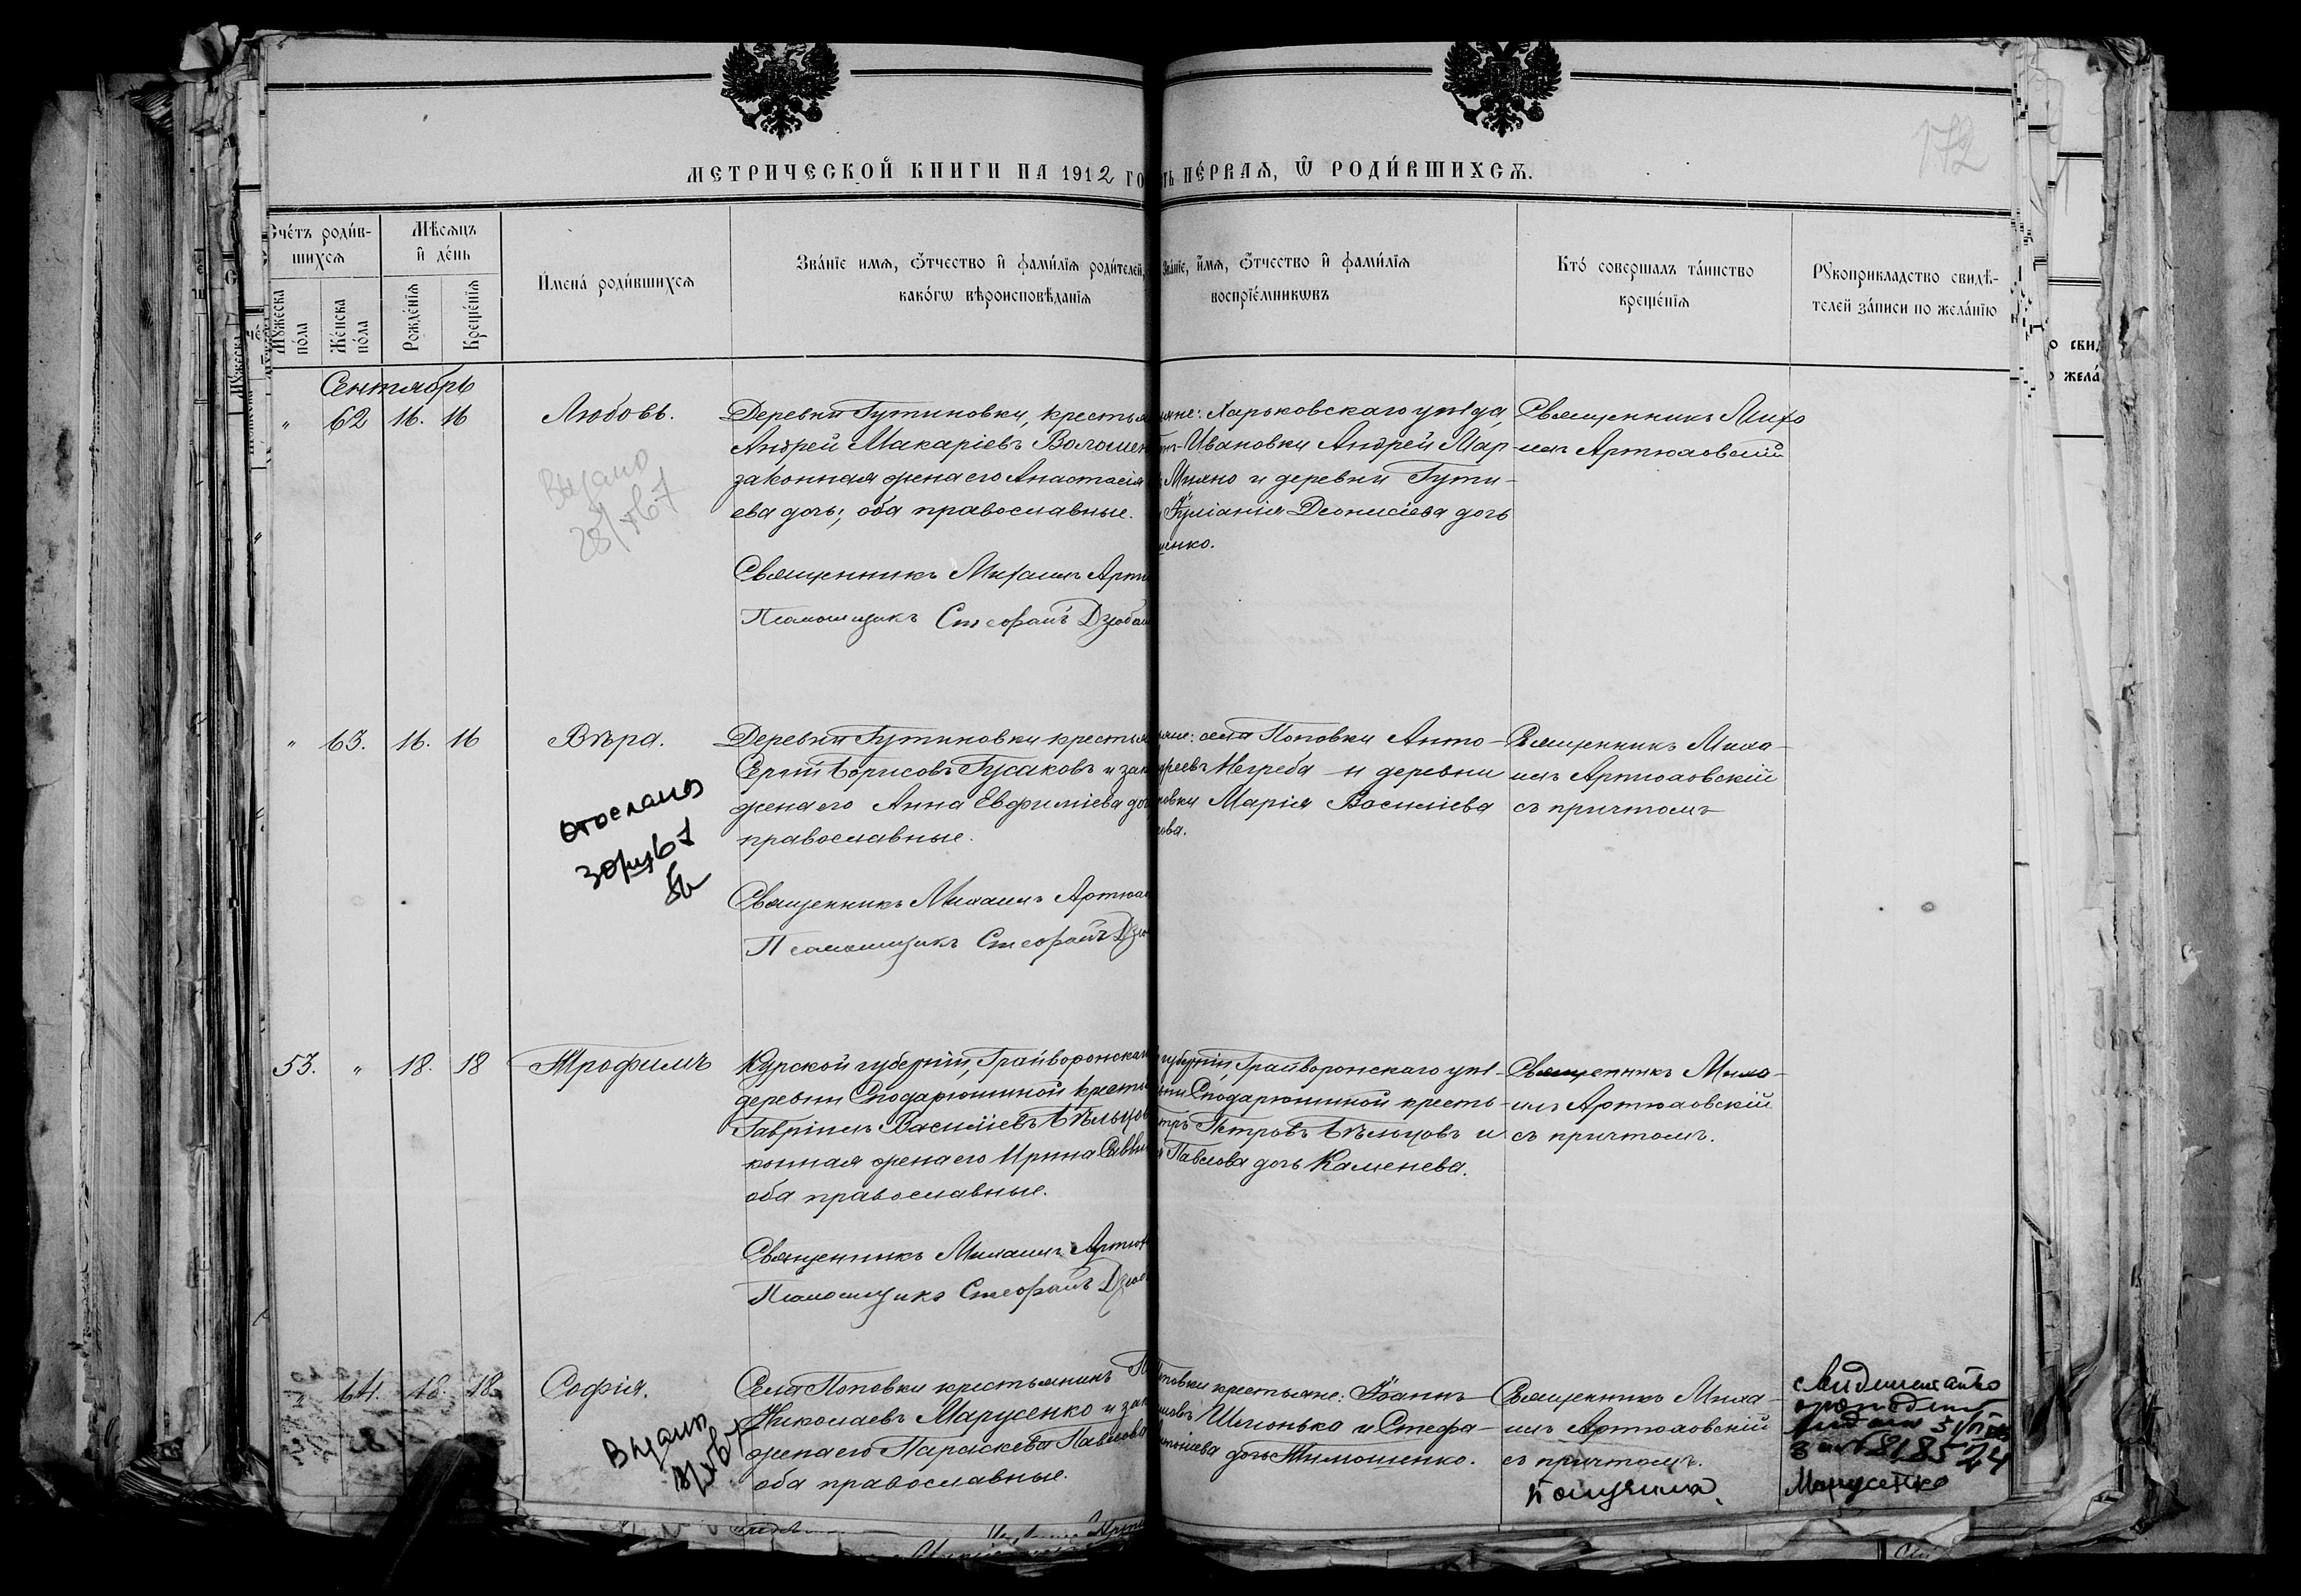 172
МЕТРИЧЕСКОЙ КНИГИ НА 1912 ГО
ТЬ ПЕ́РВАѦ, Ѡ҆ РОДИ́ВШИХСѦ.
Счéтъ роди́в-
шихсѧ
Мѣ́сѧцъ
и҆ дéнь
И҆мена̀ роди́вшихсѧ
Зва́нїе имѧ, ѻ҆́тчество и҆ фами́лїѧ роди́телей,
како́гѡ вѣроисповѣ́данїѧ
Зва́нїе, и҆́мѧ, ѻ҆́тчество и҆ фами́лїѧ
воспрїе́мникѡвъ
Кто́ соверша́лъ та́инство
креще́нїѧ
Рꙋкоприкла́дство свидѣ́-
телей за́писи по жела́нїю
Мꙋ́жеска
по́ла
Же́нска
по́ла
Рожде́нїѧ
Креще́нїѧ
Сентябрь
" 62 16. 16 Любовь.
Деревни Гутиновки, крестья
Андрей Макаріевъ Волошен
законная жена его Анастасія
ева дочь; оба православные.
Священникъ Михаилъ Артю
Псаломщикъ Стефанъ Дзюбан
Выдано
28/X 67
яне: Харьковскаго уѣзда,
Ивановки Андрей Мар-
Михно и деревни Гути-
Іуліанія Діонисіева дочь
шенко.
Священникъ Миха
илъ Артюховскій
" 63. 16. 16 Вѣра.
Деревни Гутиновки крестья
Сергій Борисовъ Гусаковъ и зак
жена его Анна Евфиміева доч
православные.
Священникъ Михаилъ Артюхо
Псаломщикъ Стефанъ Дзю
отослано
яне: села Поповки Анто-
дреевъ Негреба и деревни
новки Марія Василіева
кова.
Священникъ Миха-
илъ Артюховскій
съ причтомъ
53. " 18. 18 Трофимъ
Курской губерніи, Грайворонскаг
деревни Сподарюшиной кресть
Гавріилъ Василіевъ Бѣльцов
конная жена его Ирина Савви
оба православные.
Священникъ Михаилъ Артюх
Псаломщикъ Стефанъ Дзюб
губерніи, Грайворонскаго уѣз-
вни Сподарюшиной кресть-
тръ Петровъ Бѣльцовъ и
Павлова дочь Каменева.
Священникъ Миха-
илъ Артюховскій
съ причтомъ.
" 64. 18. 18. Софія.
Села Поповки крестьянинъ
Николаевъ Марусенко и зак
жена его Параскева Павлова
оба православные.
Выдано
повки крестьяне: Іоаннъ
Шлионька и Стефа-
дочь Тимошенко.
Священникъ Миха-
илъ Артюховскій
съ причтомъ.
получила
Марусенко